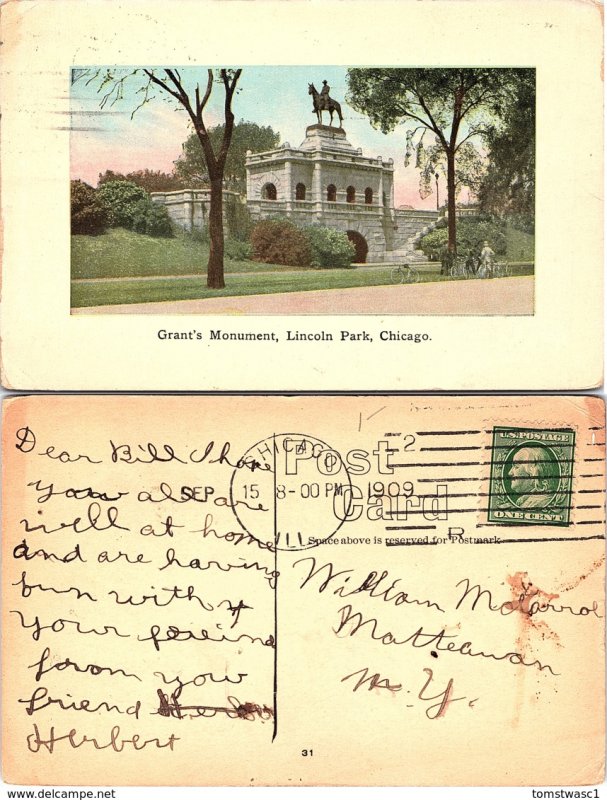 Grant's Monument, Lincoln Park, Chicago.
Dear Bill I hope
you all are
well at home
and are having
fun with
your freind
from your
friend
Herbert
CHICAGO
SEP 15 8-00 PM 1909
ILL
2
R
Post
Card
Space above is reserved for Postmark
U.S. POSTAGE
ONE CENT
William McCarrol
Matteawan
N. Y.
31
tomstwasc1